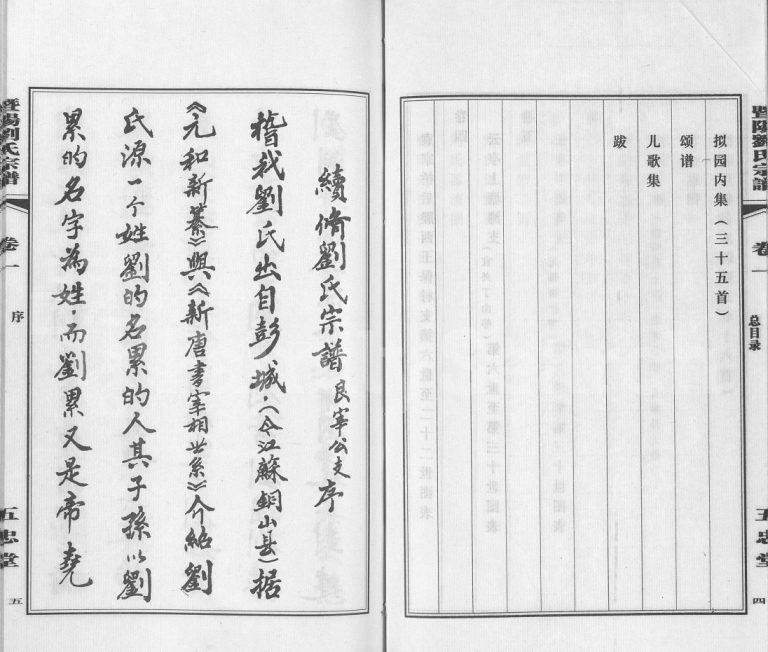 暨陽劉氏宗譜
卷一
总目录
五忠堂
四
拟园内集（三十五首）
颂谱
儿歌集
跋
續脩劉氏宗譜良宰公支序
稽我劉氏出自彭城·（今江蘇銅山县）据
《元和新纂》與《新唐書宰相世系》介紹劉
氏源一个姓劉的名累的人其子孫以劉
累的名字為姓·而劉累又是帝堯
暨陽劉氏宗譜
卷一
序
五忠堂
五